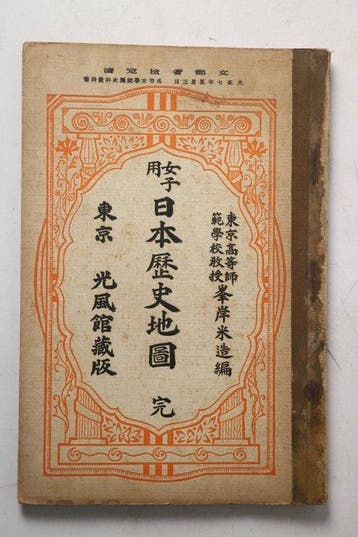 文部省検定済
大正七年五月三日 高等女學校歴史科教科書
東京高等師範學校教授 峯岸米造編
女子用 日本歷史地圖 完
東京 光風館藏版